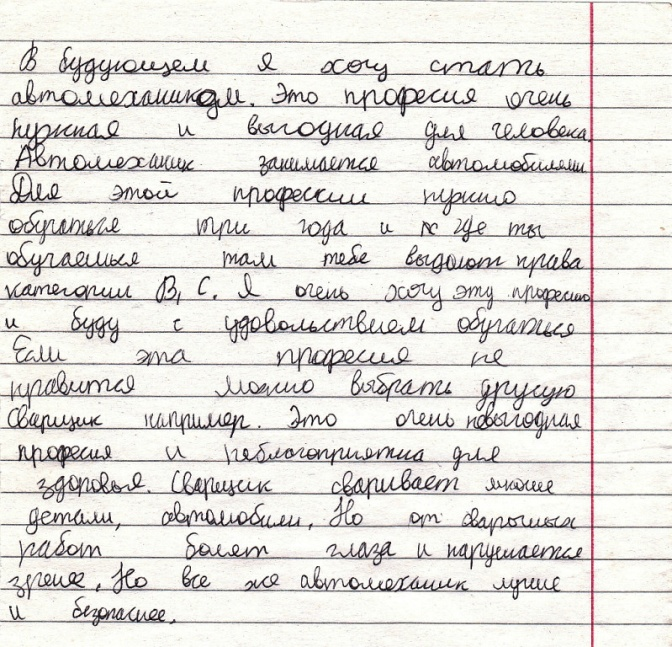 В будующем я хочу стать
автомехаником. Это професия очень
нужная и выгодная для человека.
Автомеханик занимается автомобилями
Для этой професии нужно
обучаться три года и где ты
обучаешься там тебе выдают права
категории В, С. Я очень хочу эту професию
и буду с удовольствием обучаться
Если эта професия не
нравится можно выбрать другую
Сварщик например. Это очень невыгодная
професия и неблогоприятна для
здоровья. Сварщик сваривает мкогие
детали, автомобили, Но от сварочных
работ болят глаза и нарушается
зрение, Но все же автомеханик лучше
и безопаснее.